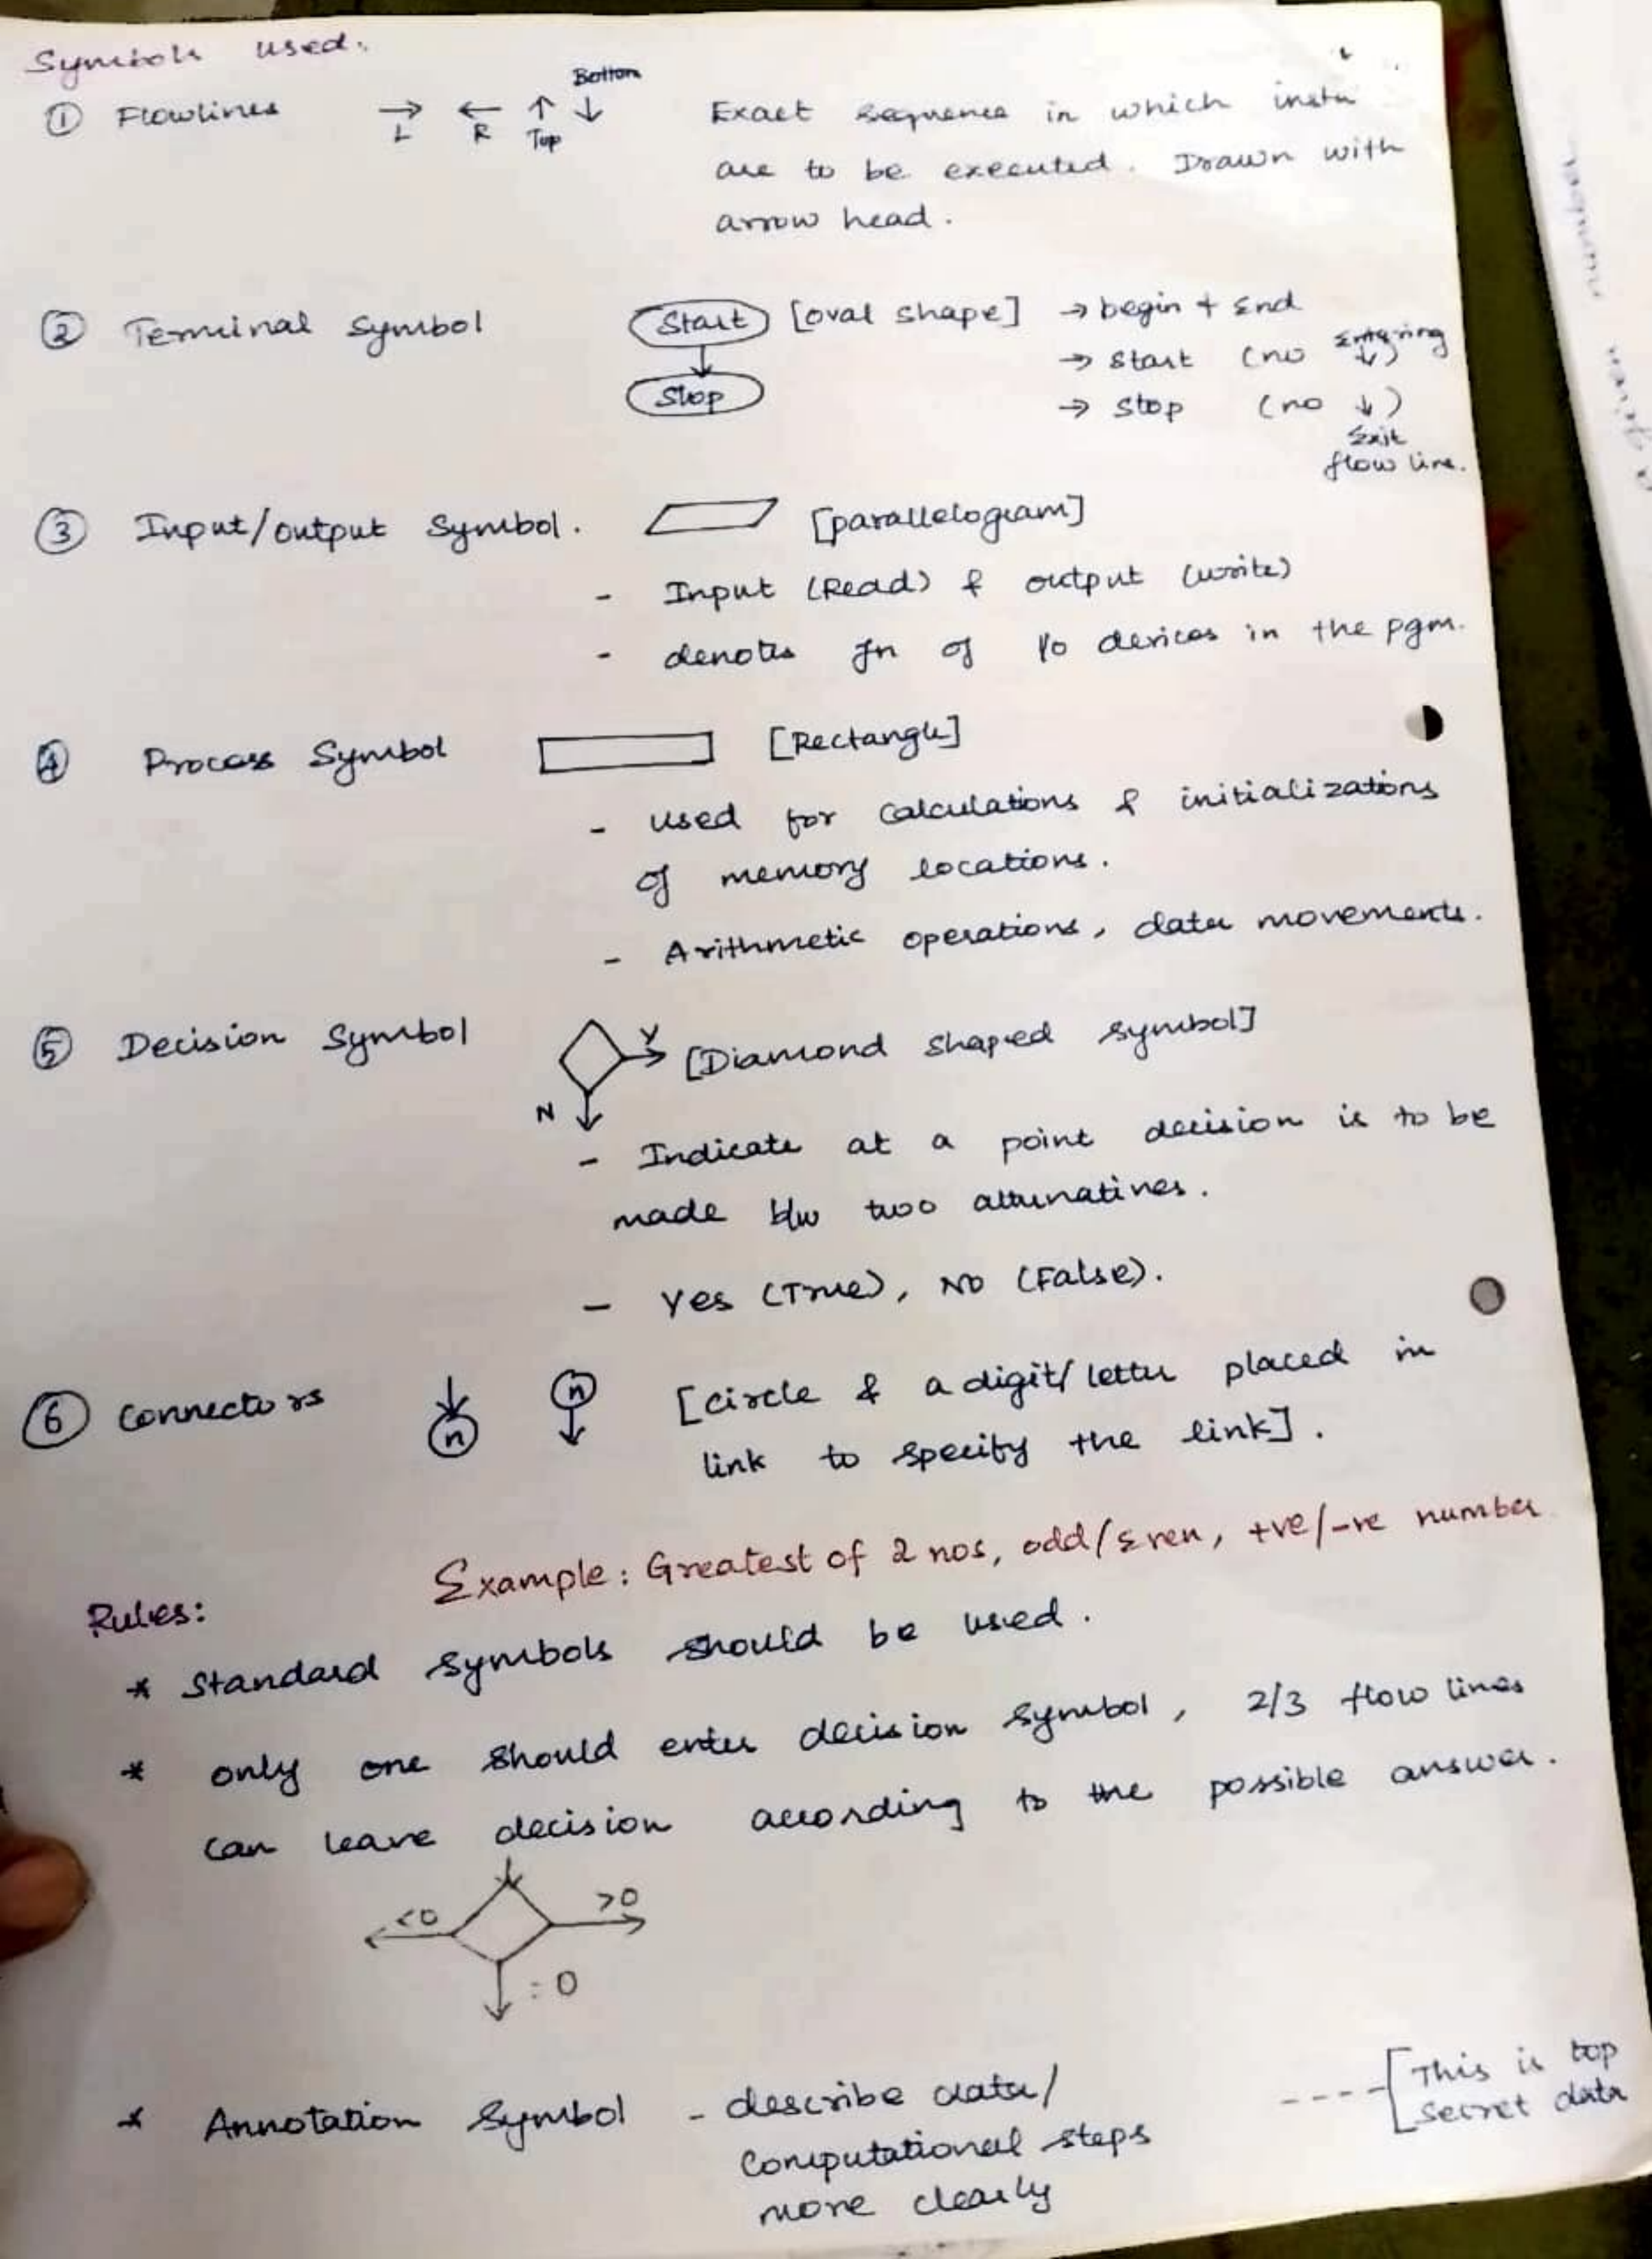 Symbols used:
① Flowlines → L ← R ↑ Top ↓ Bottom Exact sequence in which instn
are to be executed. Drawn with
arrow head.
② Terminal Symbol Start [oval shape] → begin + End
→ Start (no entering ↓)
Stop → Stop (no ↓)
Exit
flow line.
③ Input/output Symbol. [parallelogram]
- Input (Read) & output (write)
- denotes fn of I/o devices in the pgm.
④ Process Symbol [Rectangle]
- used for calculations & initializations
of memory locations.
- Arithmetic operations, data movements.
⑤ Decision Symbol Y [Diamond shaped symbol]
N
- Indicate at a point decision is to be
made b/w two alternatives.
- Yes (True), No (False).
⑥ Connectors n n [circle & a digit/letter placed in
link to specify the link].
Example: Greatest of 2 nos, odd/Even, +ve/-ve number
Rules:
* Standard symbols should be used.
* only one should enter decision symbol, 2/3 flow lines
can leave decision according to the possible answer.
<0 >0
=0
* Annotation Symbol - describe data/
computational steps
more clearly
This is top
secret data